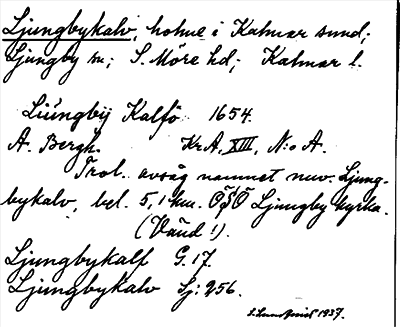 Ljungbykalv, holme i Kalmar sund;
Ljungby sn; S. Möre hd; Kalmar l.
Liűngbÿ Kalfö 1654.
A. Bergh. Kr.A, XIII, N:o A.
Trol. avsåg namnet nuv. Ljung-
bykalv, bel. 5,1 km. ÖSÖ Ljungby kyrka.
(Vaűd!).
Ljungbykalf G. 17.
Ljungbykalv Sj: 256.
1937.